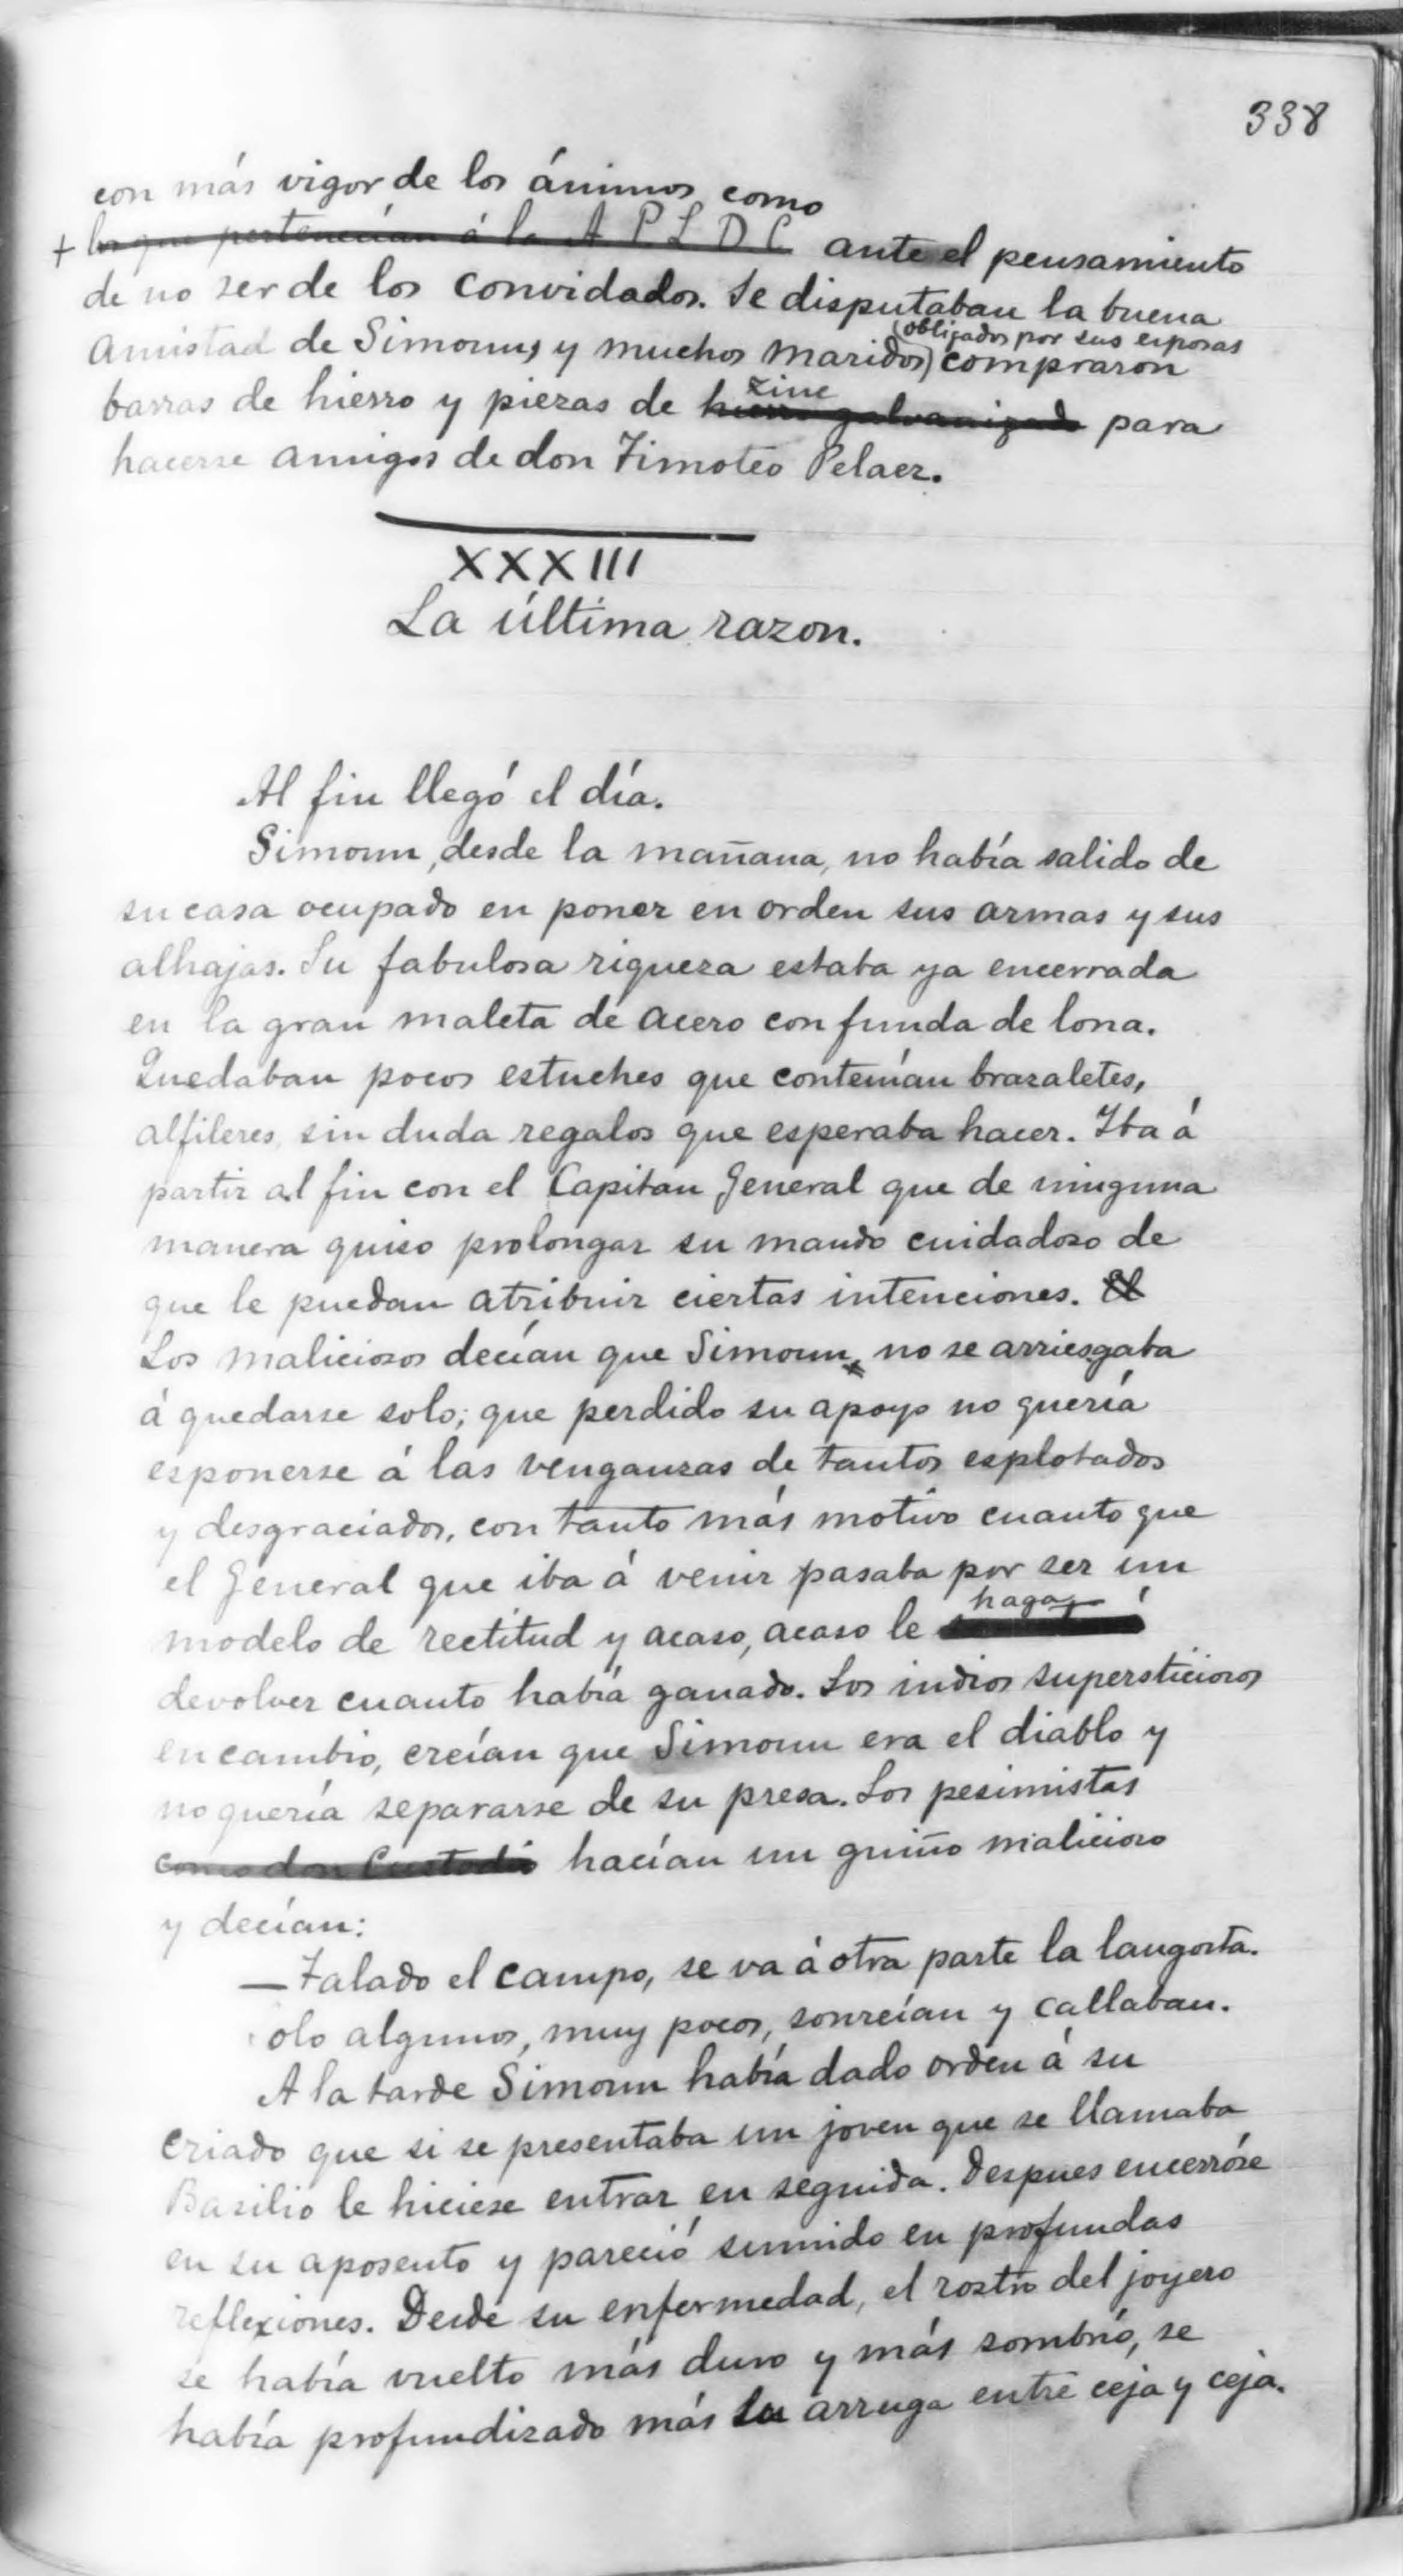 338
con más vigor de los ánimos como
+ los que pertenecían á la A P L D C ante el pensamiento
de no ser de los convidados. Se disputaban la buena
(obligados por sus esposas
amistad de Simoun, y muchos maridos) compraron
zinc
barras de hierro y piezas de hierro galvanizado para
hacerse amigos de don Timoteo Pelaez.
XXXIII
La última razon.
Al fin llegó el día.
Simoun, desde la mañana, no había salido de
su casa ocupado en poner en orden sus armas y sus
alhajas. Su fabulosa riqueza estaba ya encerrada
en la gran maleta de acero con funda de lona.
Quedaban pocos estuches que contenían brazaletes,
alfileres, sin duda regalos que esperaba hacer. Iba á
partir al fin con el Capitan General que de ninguna
manera quiso prolongar su mando cuidadoso de
que le puedan atribuir ciertas intenciones. El
Los maliciosos decían que Simoun no se arriesgaba
á quedarse solo; que perdido su apoyo no quería
esponerse á las venganzas de tantos esplotados
y desgraciados, con tanto más motivo cuanto que
el General que iba á venir pasaba por ser un
haga
modelo de rectitud y acaso, acaso le
devolver cuanto había ganado. Los indios supersticiosos
en cambio, creían que Simoun era el diablo y
no quería separarse de su presa. Los pesimistas
como don Custodio hacían un guiño malicioso
y decían:
—Talado el campo, se va á otra parte la langosta.
Solo algunos, muy pocos, sonreían y callaban.
A la tarde Simoun había dado orden á su
criado que si se presentaba un joven que se llamaba
Basilio le hiciese entrar en seguida. Despues encerróse
en su aposento y pareció sumido en profundas
reflexiones. Desde su enfermedad, el rostro del joyero
se había vuelto más duro y más sombrío, se
había profundizado más la arruga entre ceja y ceja.